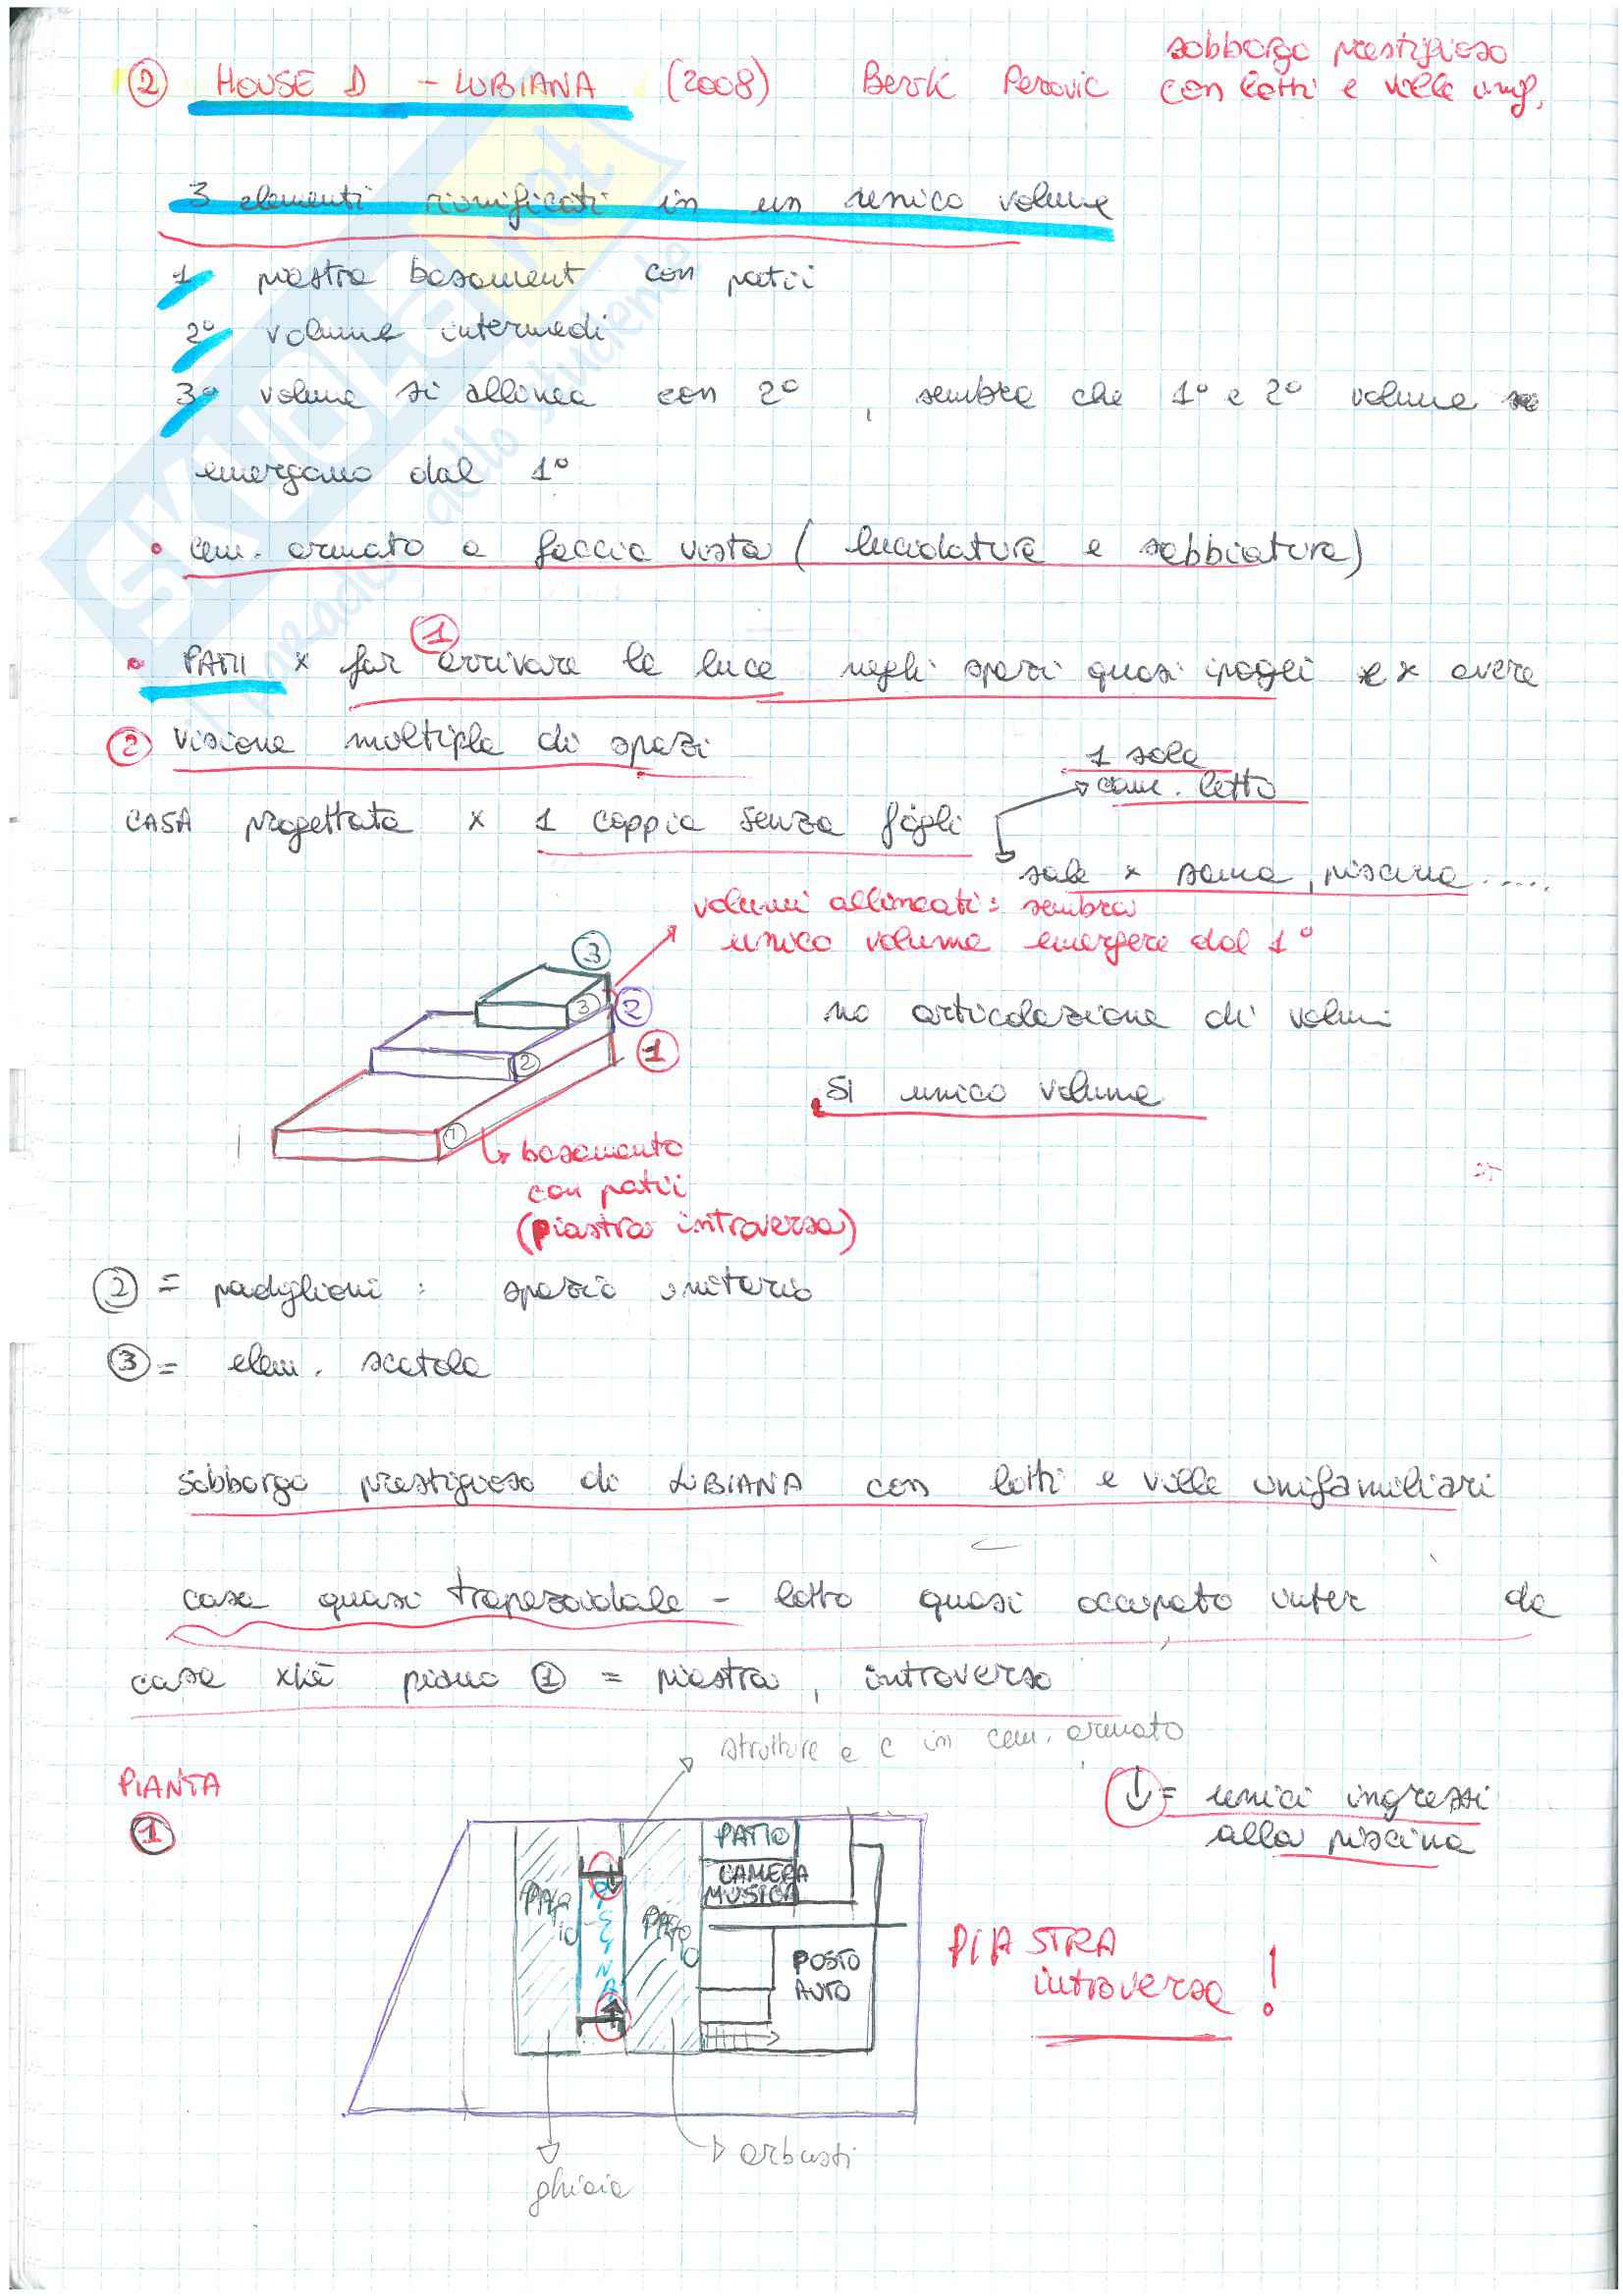 ② HOUSE D - LUBIANA (2008) Bevk Perovic
sobborgo prestigioso
con lotti e ville unif.
3 elementi riunificati in un unico volume
1 piastra basament con patii
2° volume intermedi
3° volume si allinea con 2°, sembra che 1° e 2° volume
emergano dal 1°
• cem. armato a faccia vista (lucidatura e sabbiatura)
①
• PATII x far arrivare la luce negli spazi quasi ipogei e x avere
② visione multipla di spazi
1 sola
cam. letto
CASA progettata x 1 coppia senza figli
sale x sauna, piscina.....
volumi allineati: sembra
unico volume emergere dal 1°
③
3
②
2
①
1
no articolazione di volumi
Si unico volume
basamento
con patii
(piastra introversa)
② = padiglioni : spazio unitario
③ = elem. scatola
sobborgo prestigioso di LUBIANA con lotti e ville unifamiliari
casa quasi trapezoidale - lotto quasi occupato inter da
casa xkè piano ① = piastra, introverso
strutture e c in cem. armato
PIANTA
①
↓ = unici ingressi
alla piscina
PATIO
CAMERA
MUSICA
PATIO
PISCINA
PATIO
POSTO
AUTO
PIASTRA
introversa !
arbusti
ghiaia
SKUOLA.net
il paradiso dello studente